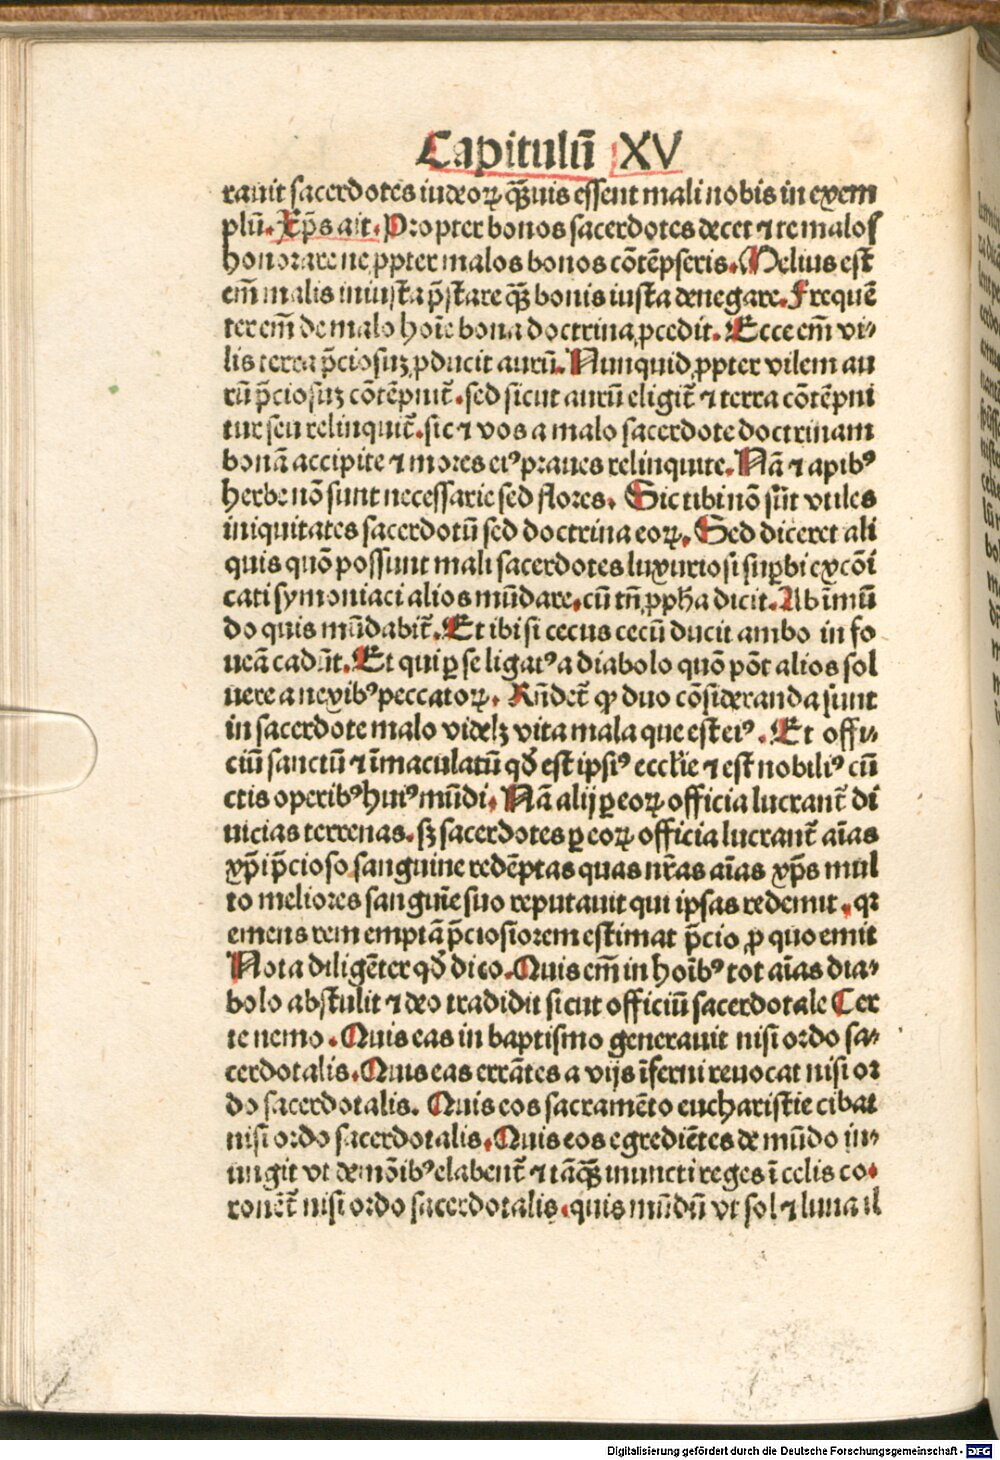 Capitulū XV
rauit sacerdotes iudeoꝝ q̄uis essent mali nobis in exem
plū. Xp̄s ait. Propter bonos sacerdotes decet ⁊ te malos
honorare ne ꝓpter malos bonos cōtēpseris. Melius est
em̄ malis iniusta p̄stare q̄ bonis iusta denegare. Frequē
ter em̄ de malo hoīe bona doctrina ꝓcedit. Ecce em̄ vi⸗
lis terra p̄ciosuꝫ ꝓducit aurū. Nunquid ꝓpter vilem au
rū p̄ciosuꝫ cōtēpnit̄. sed sicut aurū eligit̄ ⁊ terra cōtēpni
tur seu relinquit̄. sic ⁊ vos a malo sacerdote doctrinam
bonā accipite ⁊ mores eiꝰ praues relinquite. Nā ⁊ apibꝰ
herbe nō sunt necessarie sed flores. Sic tibi nō sūt vtiles
iniquitates sacerdotū sed doctrina eoꝝ. Sed diceret ali
quis quō possunt mali sacerdotes luxuriosi suꝑbi excōi
cati symoniaci alios mūdare. cū tn̄ ꝓpha dicit. Ab īmū
do quis mūdabit̄. Et ibi si cecus cecū ducit ambo in fo
ueā cadūt. Et qui ꝑ se ligatꝰ a diabolo quō pōt alios sol
uere a nexibꝰ peccatoꝝ. Rn̄det̄ ꝙ duo cōsideranda sunt
in sacerdote malo videlꝫ vita mala que est eiꝰ. Et offi⸗
ciū sanctū ⁊ īmaculatū qd̄ est ipsiꝰ eccl̄ie ⁊ est nobiliꝰ cū
ctis operibꝰ huiꝰ mūdi. Nā alij ꝑ eoꝝ officia lucrant̄ di
uicias terrenas. sꝫ sacerdotes ꝑ eoꝝ officia lucrant̄ aīas
xp̄i p̄cioso sanguine redēptas quas nr̄as aīas xp̄s mul
to meliores sanguīe suo reputauit qui ipsas redemit. qꝛ
emens rem emptā p̄ciosiorem estimat p̄cio ꝓ quo emit
Nota diligēter qd̄ dico. Quis em̄ in hoībꝰ tot aīas dia⸗
bolo abstulit ⁊ deo tradidit sicut officiū sacerdotale Cer
te nemo. Quis eas in baptismo generauit nisi ordo sa⸗
cerdotalis. Quis eas errātes a vijs īferni reuocat nisi or
do sacerdotalis. Quis eos sacramēto eucharistie cibat
nisi ordo sacerdotalis. Quis eos egrediētes de mūdo in⸗
ungit vt demōibꝰ elabent̄ ⁊ tāq̄ inuncti reges ī celis co⸗
ronēt̄ nisi ordo sacerdotalis. quis mūdū vt sol ⁊ luna il
Digitalisierung gefördert durch die Deutsche Forschungsgemeinschaft - DFG